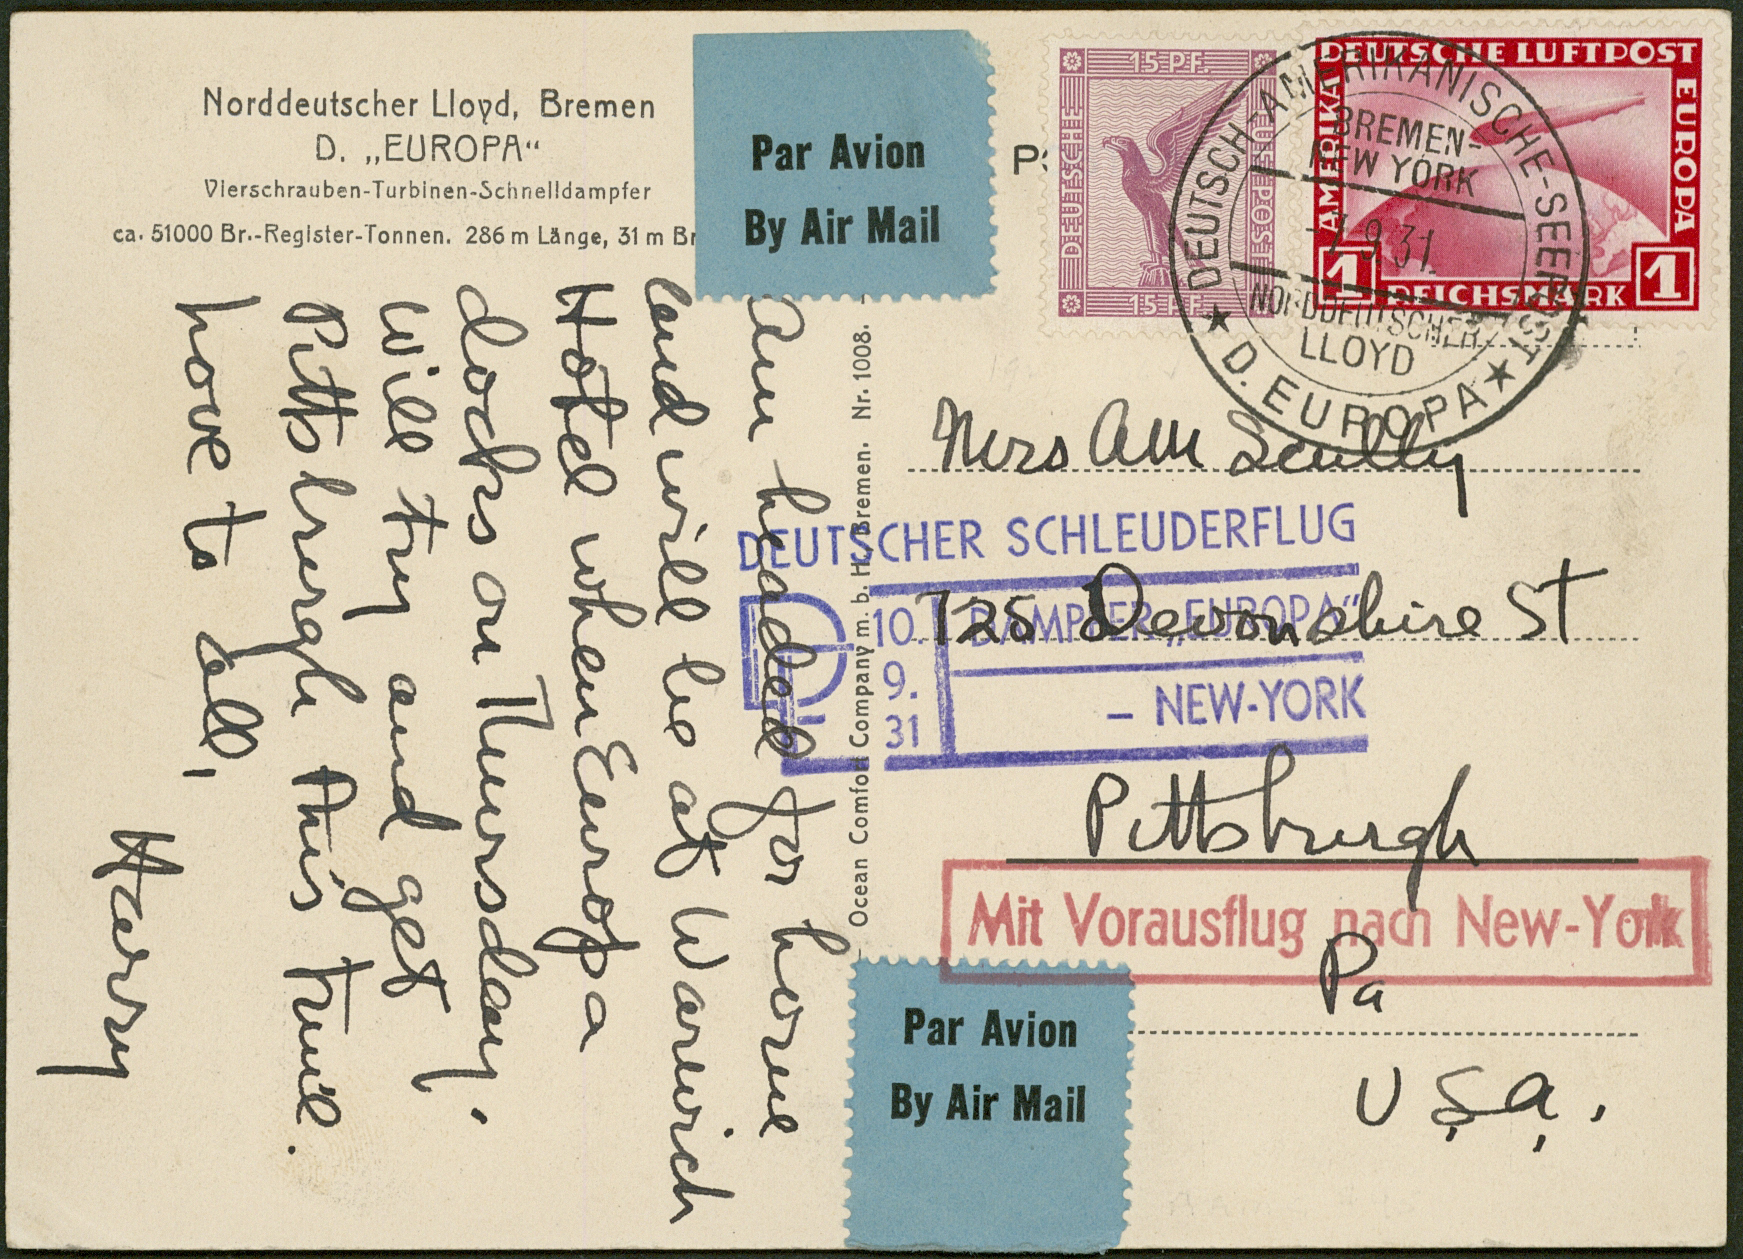 Norddeutscher Lloyd, Bremen
D. „EUROPA“
Vierschrauben-Turbinen-Schnelldampfer
ca. 51000 Br.-Register-Tonnen. 286 m Länge, 31 m Br
Par Avion
By Air Mail
15 PF.
DEUTSCHE
FLUGPOST
15 PF.
DEUTSCHE LUFTPOST
AMERIKA
EUROPA
1 REICHSMARK 1
DEUTSCH-AMERIKANISCHE-SEEPOST
BREMEN-
NEW YORK
-7.9.31.
NORDDEUTSCHER
LLOYD
★ D. EUROPA ★
Am headed for home
and will be at Warwick
Hotel when Europa
docks on Thursday.
Will try and get
Pittsburgh this time.
Love to all,
Harry
Ocean Comfort Company m. b. H. Bremen. Nr. 1008.
Mrs Scully
725 Devonshire St
Pittsburgh
Pa
U.S.A.
DEUTSCHER SCHLEUDERFLUG
10.
9.
31
DAMPFER „EUROPA“
– NEW-YORK
Mit Vorausflug nach New-York
Par Avion
By Air Mail